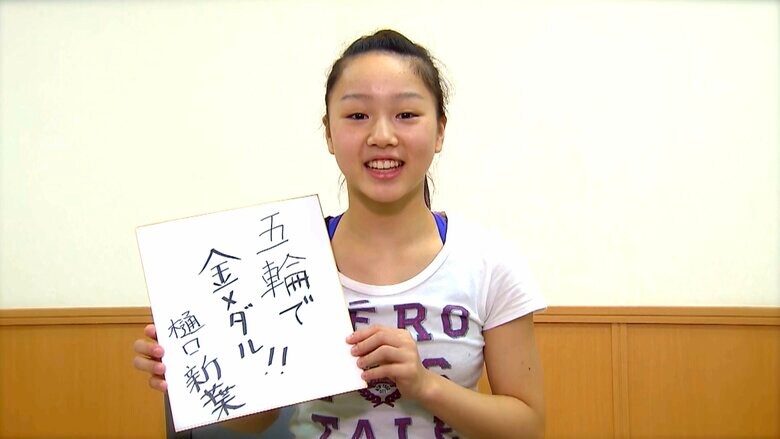 五輪で
金メダル!!
樋口新葉
ÉRO
TALE